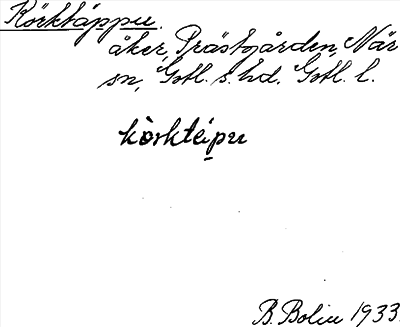 Körktäppu.
åker, Prästgården, När
sn, Gotl. s. hd. Gotl. l.
kòrktèpu
B. Bolin 1933.